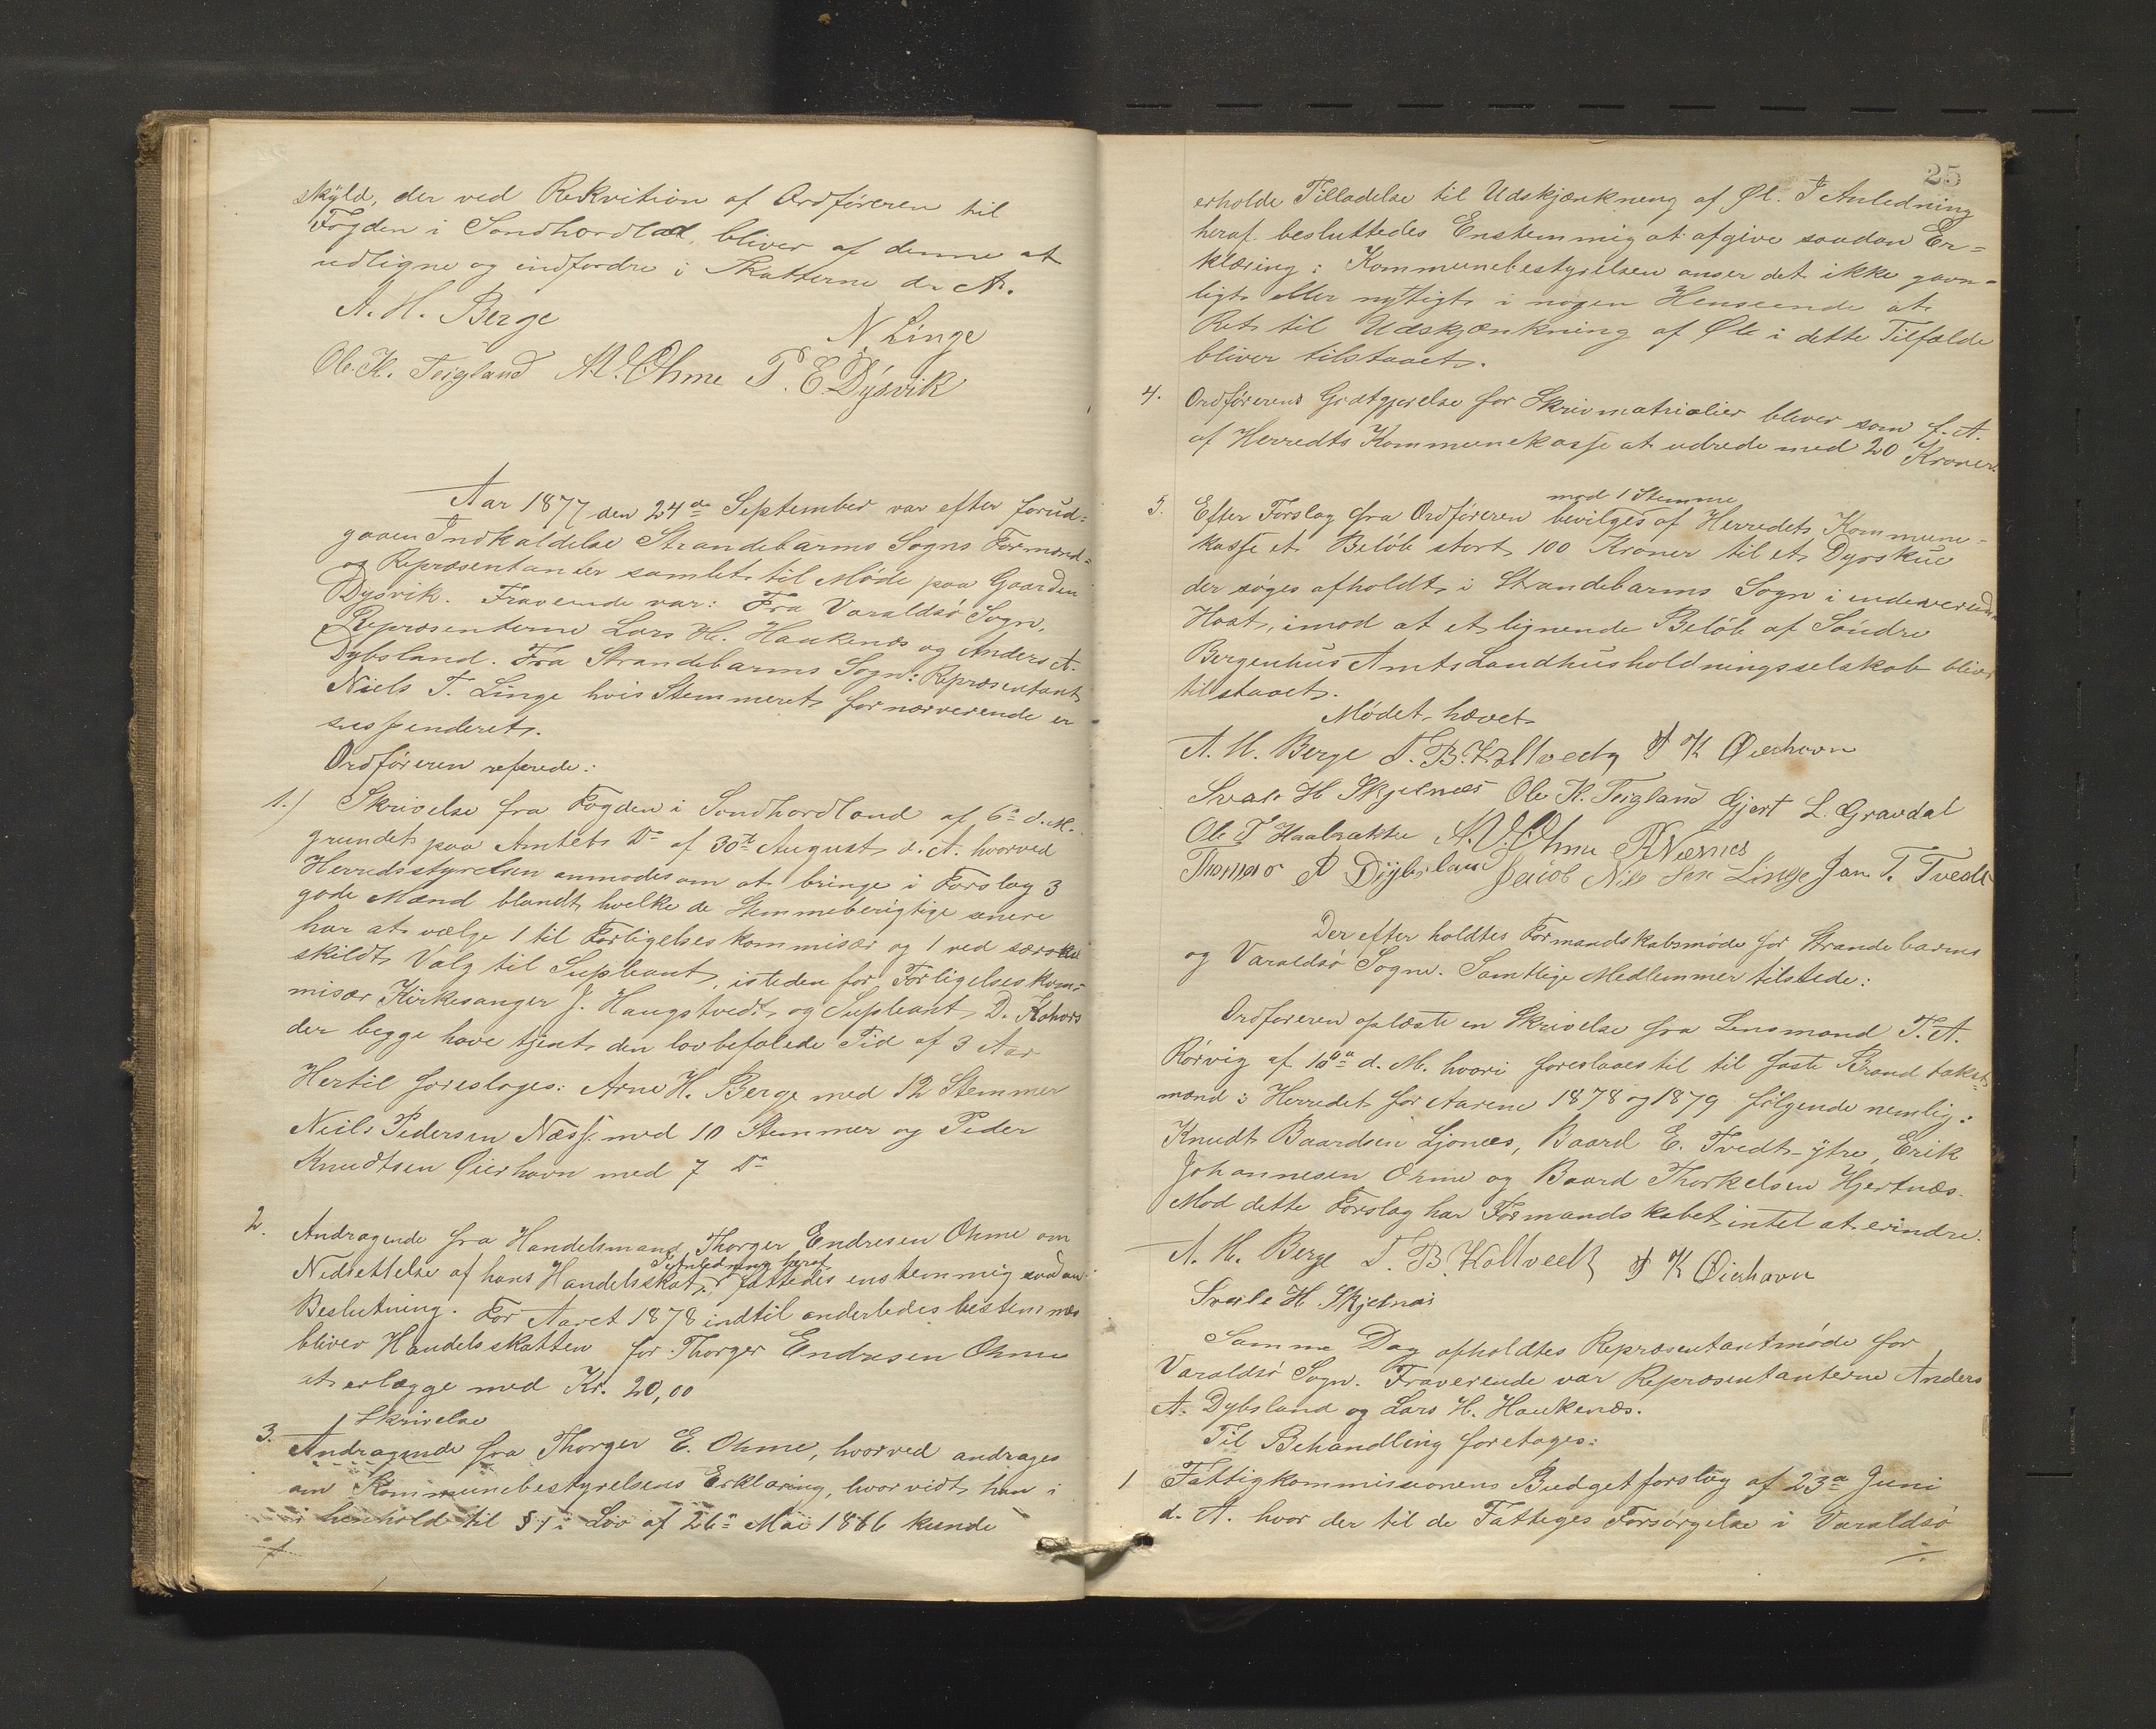 skyld, der ved Rekvition af Ordføreren til
Fogden i Søndhordlad, bliver af denne at
udligne og indfordre i Skatterne d. A.
A. H. Berge
N. Linge
Ole K. Teigland A. O. Ohme P. E. Dysvik
Aar 1877 den 24de September var efter forud-
gaaen Indkaldelse Strandebarms Sogns Formænd-
og Repræsentanter samlet til Møde paa Gaarden
Dysvik. Fraværende var: Fra Varaldsø Sogn,
Repræsenterne Lars H. Haukenæs og Anders A.
Dybsland. Fra Strandebarms Sogn: Repræsentant
Niels T. Linge hvis Stemmeret for nærverende er
suspenderet.
Ordføreren referede:
1.) Skrivelse fra Fogden i Søndhordland af 6te d. M.
grundet paa Amtets Do af 30te August d. A. hvorved
Herredsstyrelsen anmodes om at bringe i Forslag 3
gode Mænd blandt hvelke de Stemmeberigtige senere
har at vælge 1 til Forligelseskommisær og 1 ved særs
skildt Valg til Supleant, isteden for Forligelseskom-
misær Kirkesanger J. Haugstvedt og Supleant D.
der begge have tjent den lovbefalede Tid af 3 Aar
Hertil foresloges: Arne H. Berge med 12 Stemmer
Neils Pedersen Næss med 10 Stemmer og Peder
Knudtsen Øierhavn med 7 Do
2. Andragende fra Handelsmand Thorger Endresen Ohme om
I Anledning heraf
Nedsettelse af hans Handelsskat, fattedes enstemmig saadan
Beslutning. For Aaret 1878 indtil anderledes bestemmes
bliver Handelsskatten for Thorger Endresen Ohme
at erlægge med Kr. 20,00
Skrivelse
3. Andragende fra Thorger E. Ohme, hvorved andrages
om Kommunebestyrelsens Erklæring, hvorvidt han i
i henhold til § 1 i Lov af 26de Mai 1866 kunde
25
erholde Tilladelse til Udskjænkneng af Øl. I Anledning
heraf besluttedes Enstemmig at afgive saadan Er-
klæring: Kommunebestyrelsen anser det ikke gavn-
ligt eller nyttigt i nogen Henseende at
Ret til Udskjænkning af Øle i dette Tilfælde
bliver tilstaaet.
4. Ordførerens Godtgjørelse for Skrivmatrialier bliver som f. A.
af Herredts Kommunekasse at udrede med 20 Kroner.
mod 1 Stemme
5. Efter Forslag fra Ordføreren bevilges af Herredets Kommune-
kasse et Beløb stort 100 Kroner til et Dyrskue
der søges afholdt i Strandebarms Sogn i indeverende
Høst, imod at et lignende Beløb af Søndre
Bergenhus Amts Landhusholdningsselskab bliver
tilstaaet.
Mødet hævet
A. H. Berge T. B. Koltvedt P K Øierhavn
Svale H Skjelnæs Ole K. Teigland Gjert L. Gravdal
Ole T Haabrække A. O. Ohme P. Nernes
Thomas A Dybsland Jacob Nils Sen Linge Jan T. Tvedt
Der efter holdtes Formandskabsmøde for Strandebarms
og Varaldsø Sogne. Samtlige Medlemmer tilstede:
Ordføreren oplæste en Skrivelse fra Lensmand T. A.
Rørvig af 10de d. M. hvori foreslaaes til til faste Brandtakst-
mænd i Herredet for Aarene 1878 og 1879 følgende nemlig:
Knudt Baardsen Ljonæs, Baard E. Tvedt-ytre, Erik
Johannesen Ohme og Baard Thorkelsen Hjertnæs.
Mod dette Forslag har Formandskabet intet at erindre.
A. H. Berge T. B. Koltvedt P K Øierhavn
Svale H Skjelnæs
Samme Dag afholdtes Repræsentantmøde for
Varaldsø Sogn. Fraverende var Repræsentanterne Anders
A. Dybsland og Lars H. Haukenæs.
Til Behandling foretages:
1 Fattigkommissionens Budgetforslag af 23de Juni
d. A. hvor der til de Fattiges Forsørgelse i Varaldsø